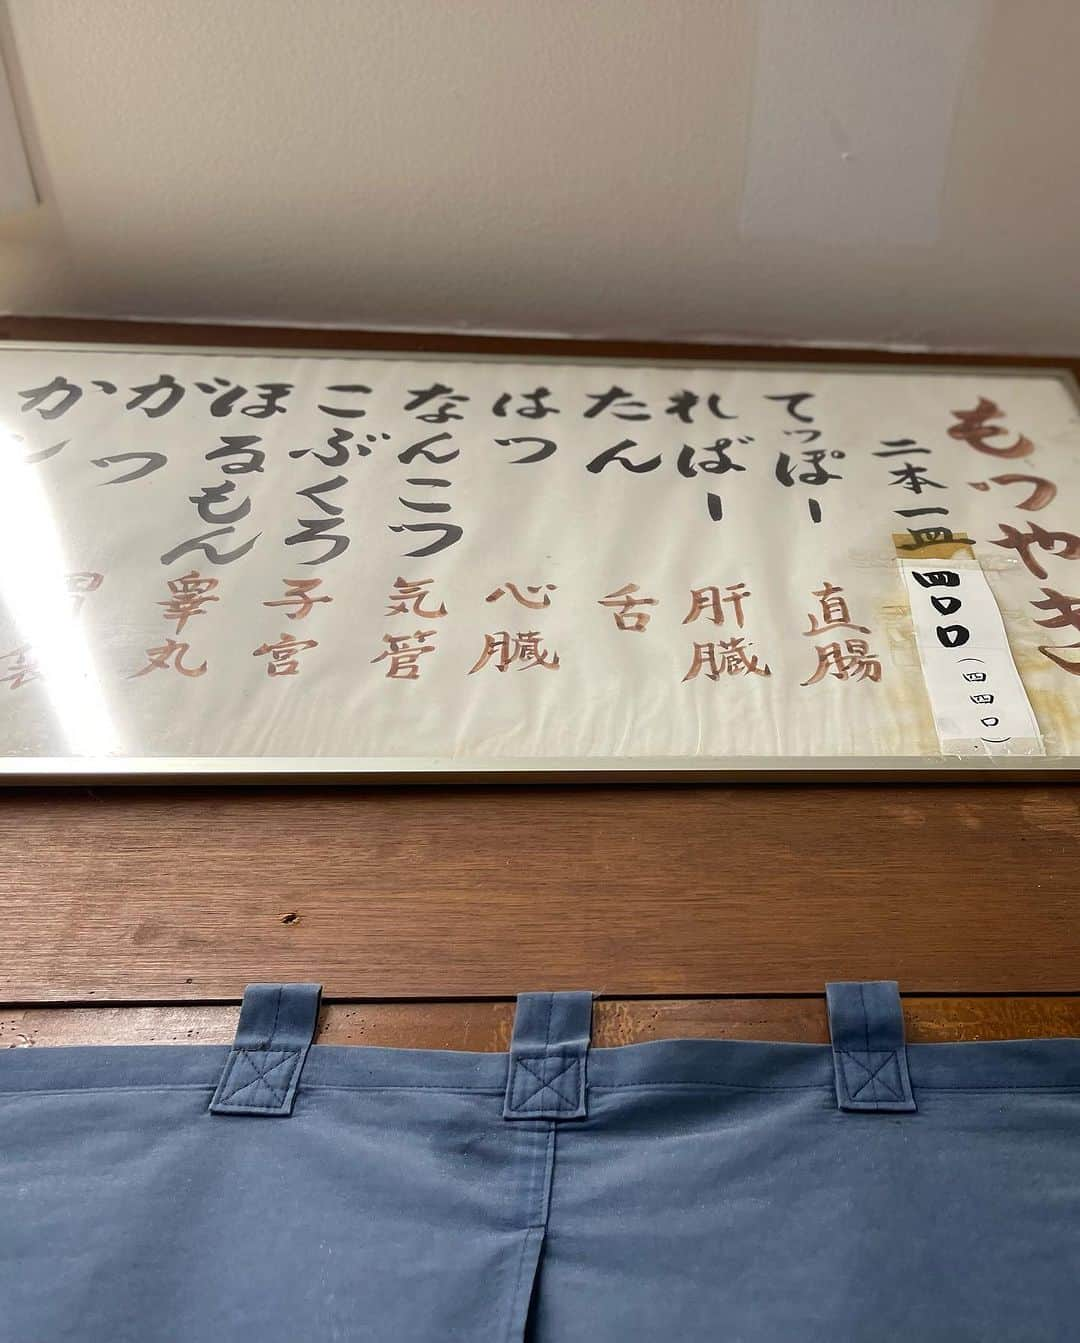 もつやき
二本一皿 四〇〇(四四〇)
てっぽー 直腸
ればー 肝臓
たん 舌
はつ 心臓
なんこつ 気管
こぶくろ 子宮
ほるもん 睾丸
がつ 胃袋
かし